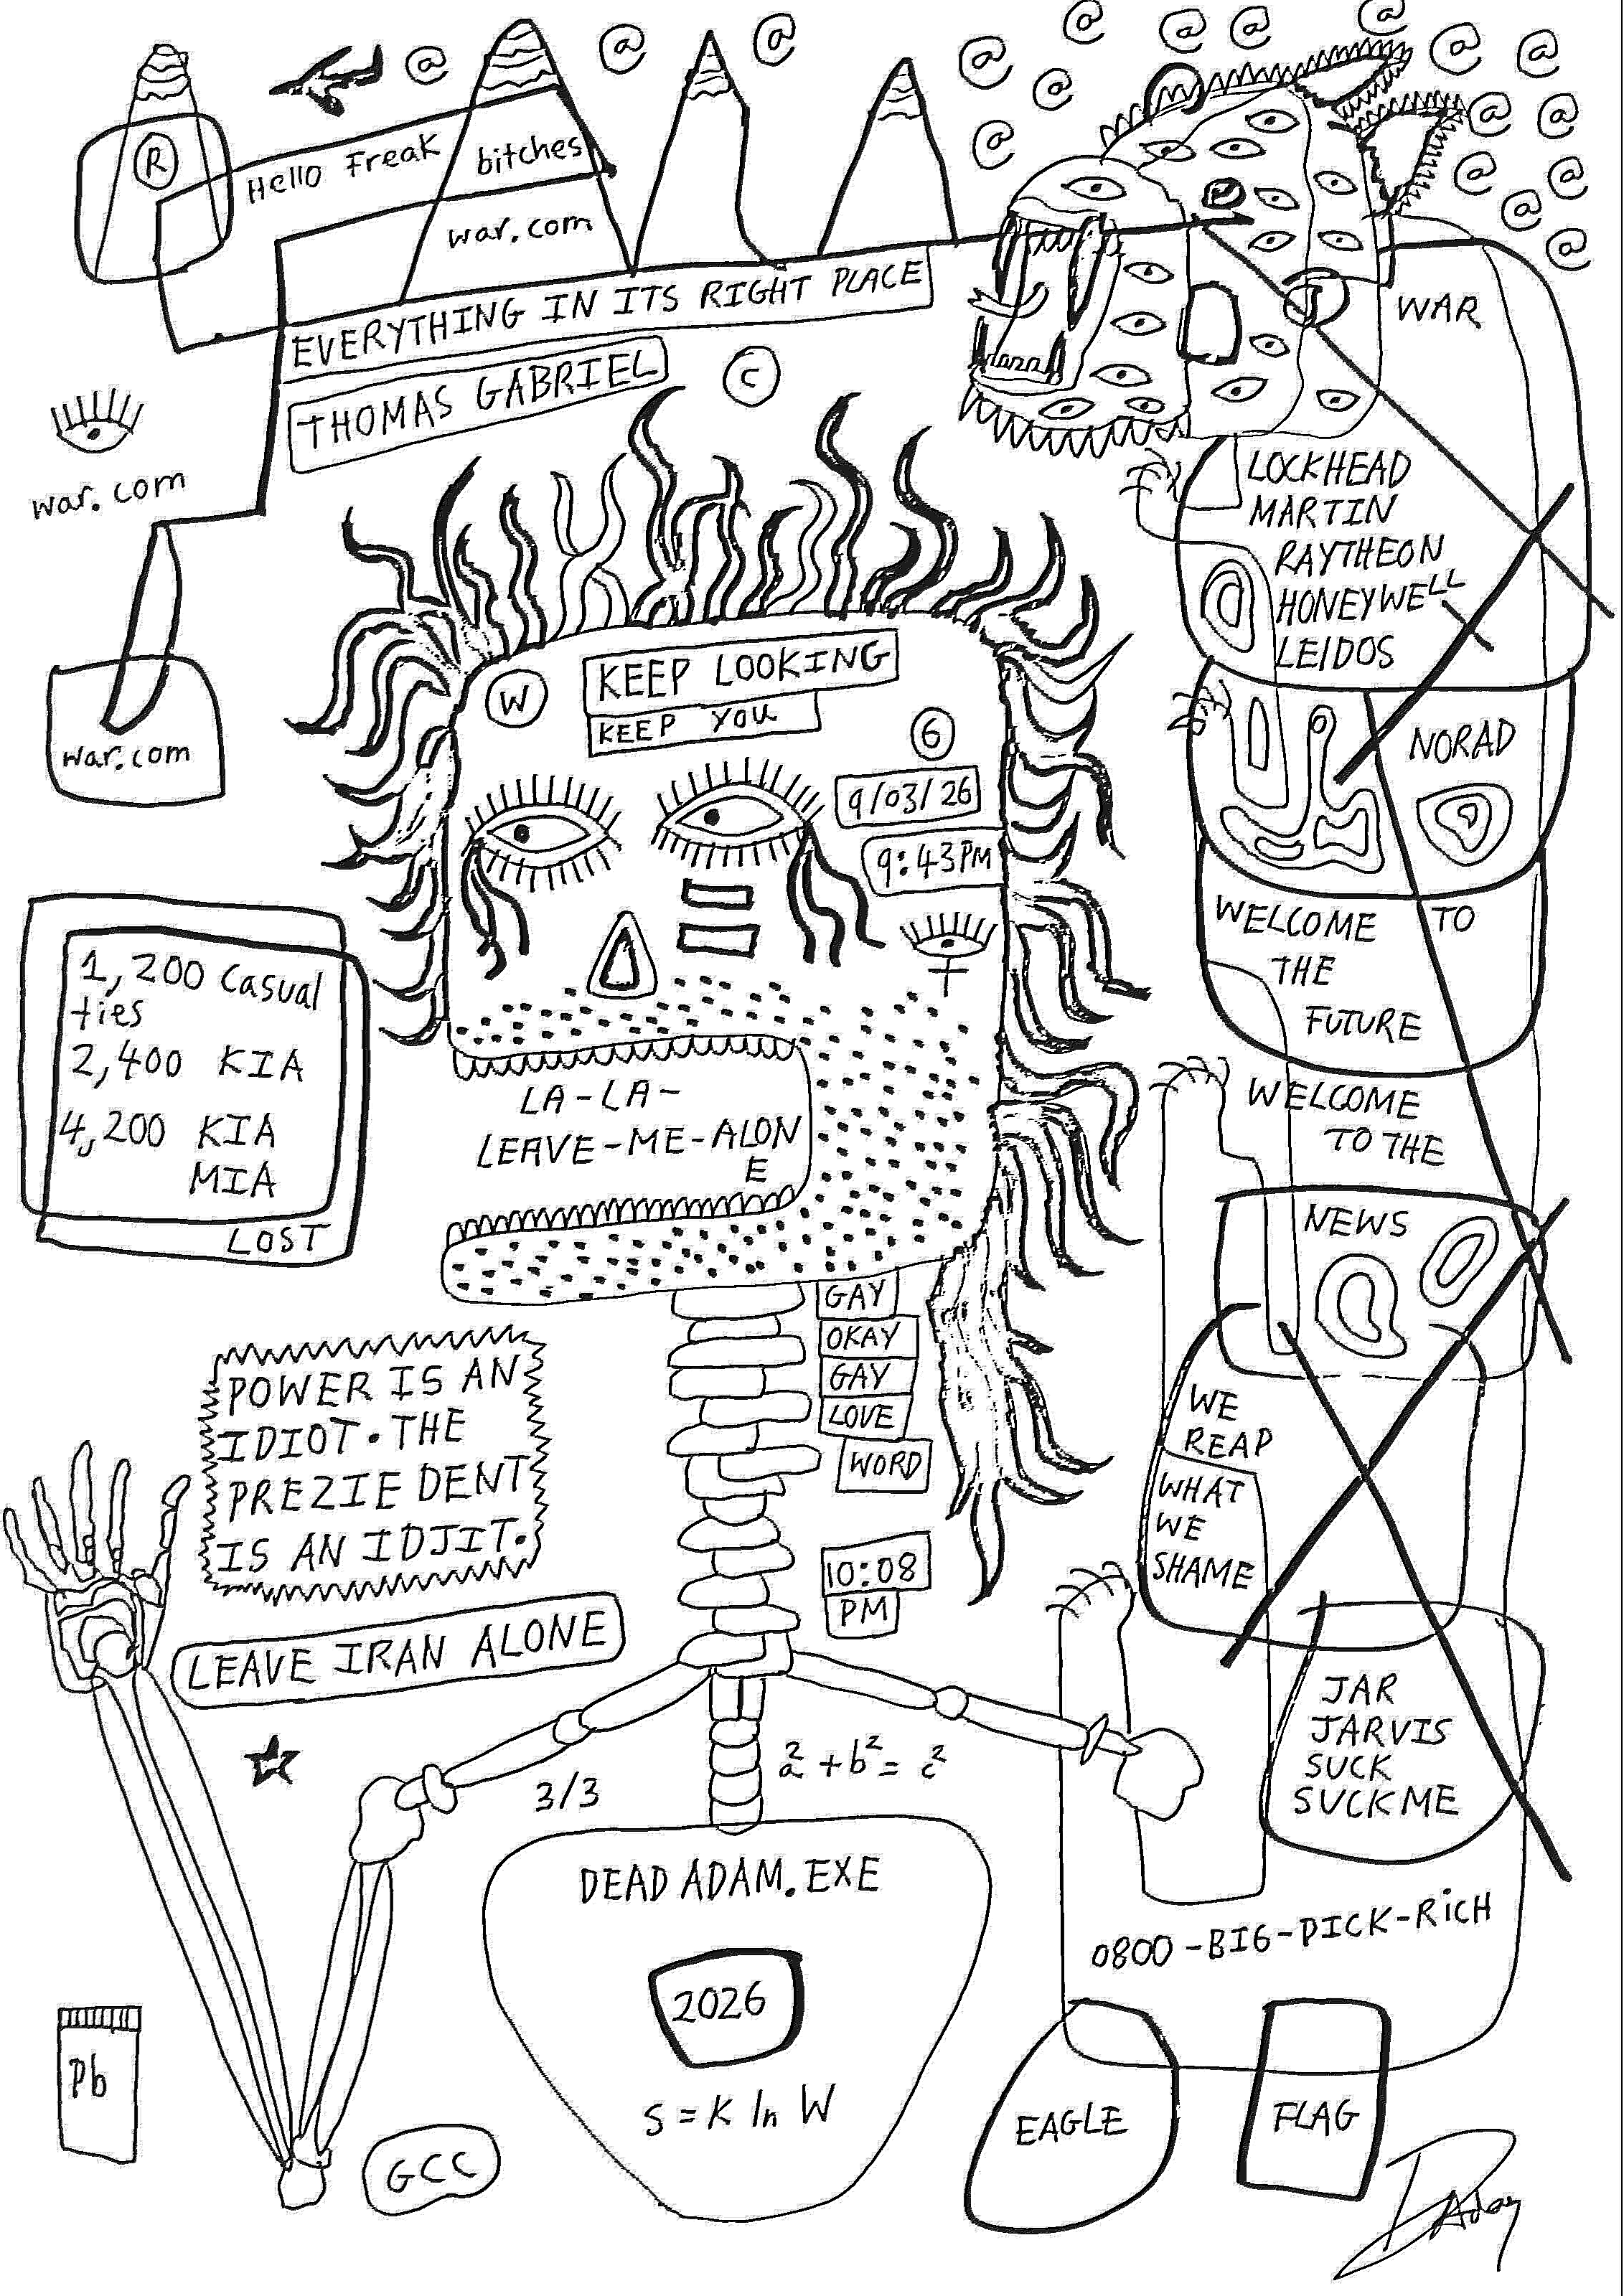 @ @ @ @ @ @ @ @ @ @ @ @ @ @ @ @ @ @ @
R
Hello Freak bitches
war.com
EVERYTHING IN ITS RIGHT PLACE
THOMAS GABRIEL
C
war.com
war.com
WAR
LOCKHEAD
MARTIN
RAYTHEON
HONEYWELL
LEIDOS
NORAD
WELCOME TO
THE
FUTURE
WELCOME
TO THE
NEWS
WE
REAP
WHAT
WE
SHAME
JAR
JARVIS
SUCK
SUCKME
0800-BIG-PICK-RiCH
EAGLE
FLAG
W
KEEP LOOKING
KEEP YOU
6
9/03/26
9:43PM
LA-LA-
LEAVE-ME-ALON
E
1,200 Casual
ties
2,400 KIA
4,200 KIA
MIA
LOST
GAY
OKAY
GAY
LOVE
WORD
10:08
PM
POWER IS AN
IDIOT. THE
PREZIE DENT
IS AN IDJIT.
LEAVE IRAN ALONE
3/3
a² + b² = c²
DEAD ADAM.EXE
2026
S = K ln W
Pb
GCC
DAdam